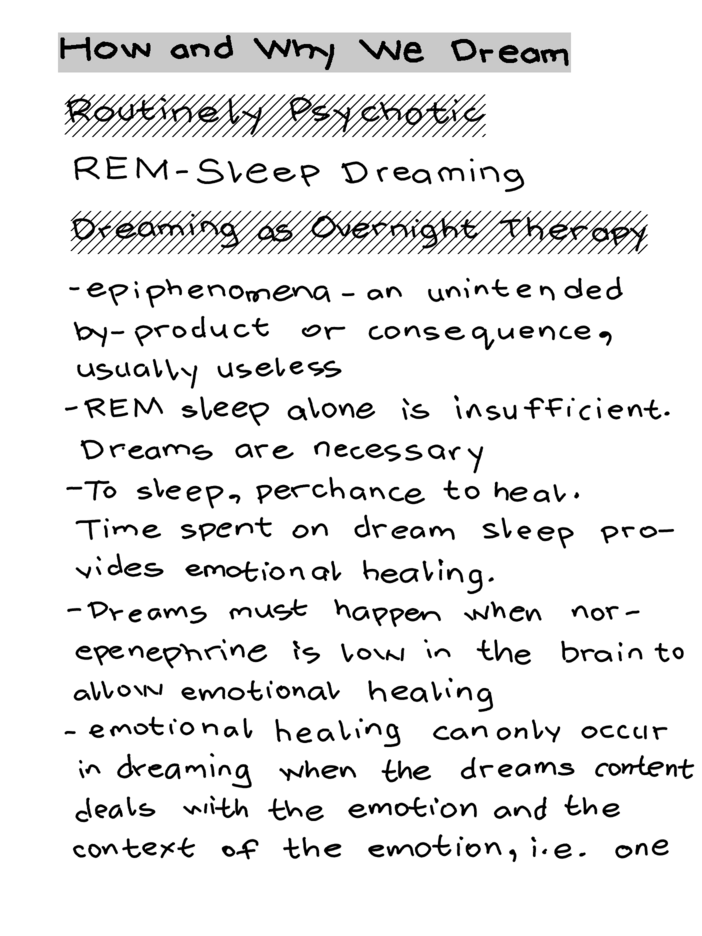 How and Why We Dream
Routinely Psychotic
REM-Sleep Dreaming
Dreaming as Overnight Therapy
-epiphenomena - an unintended
by-product or consequence,
usually useless
-REM sleep alone is insufficient.
Dreams are necessary
-To sleep, perchance to heal.
Time spent on dream sleep pro-
vides emotional healing.
-Dreams must happen when nor-
epenephrine is low in the brain to
allow emotional healing
- emotional healing can only occur
in dreaming when the dreams content
deals with the emotion and the
context of the emotion, i.e. one